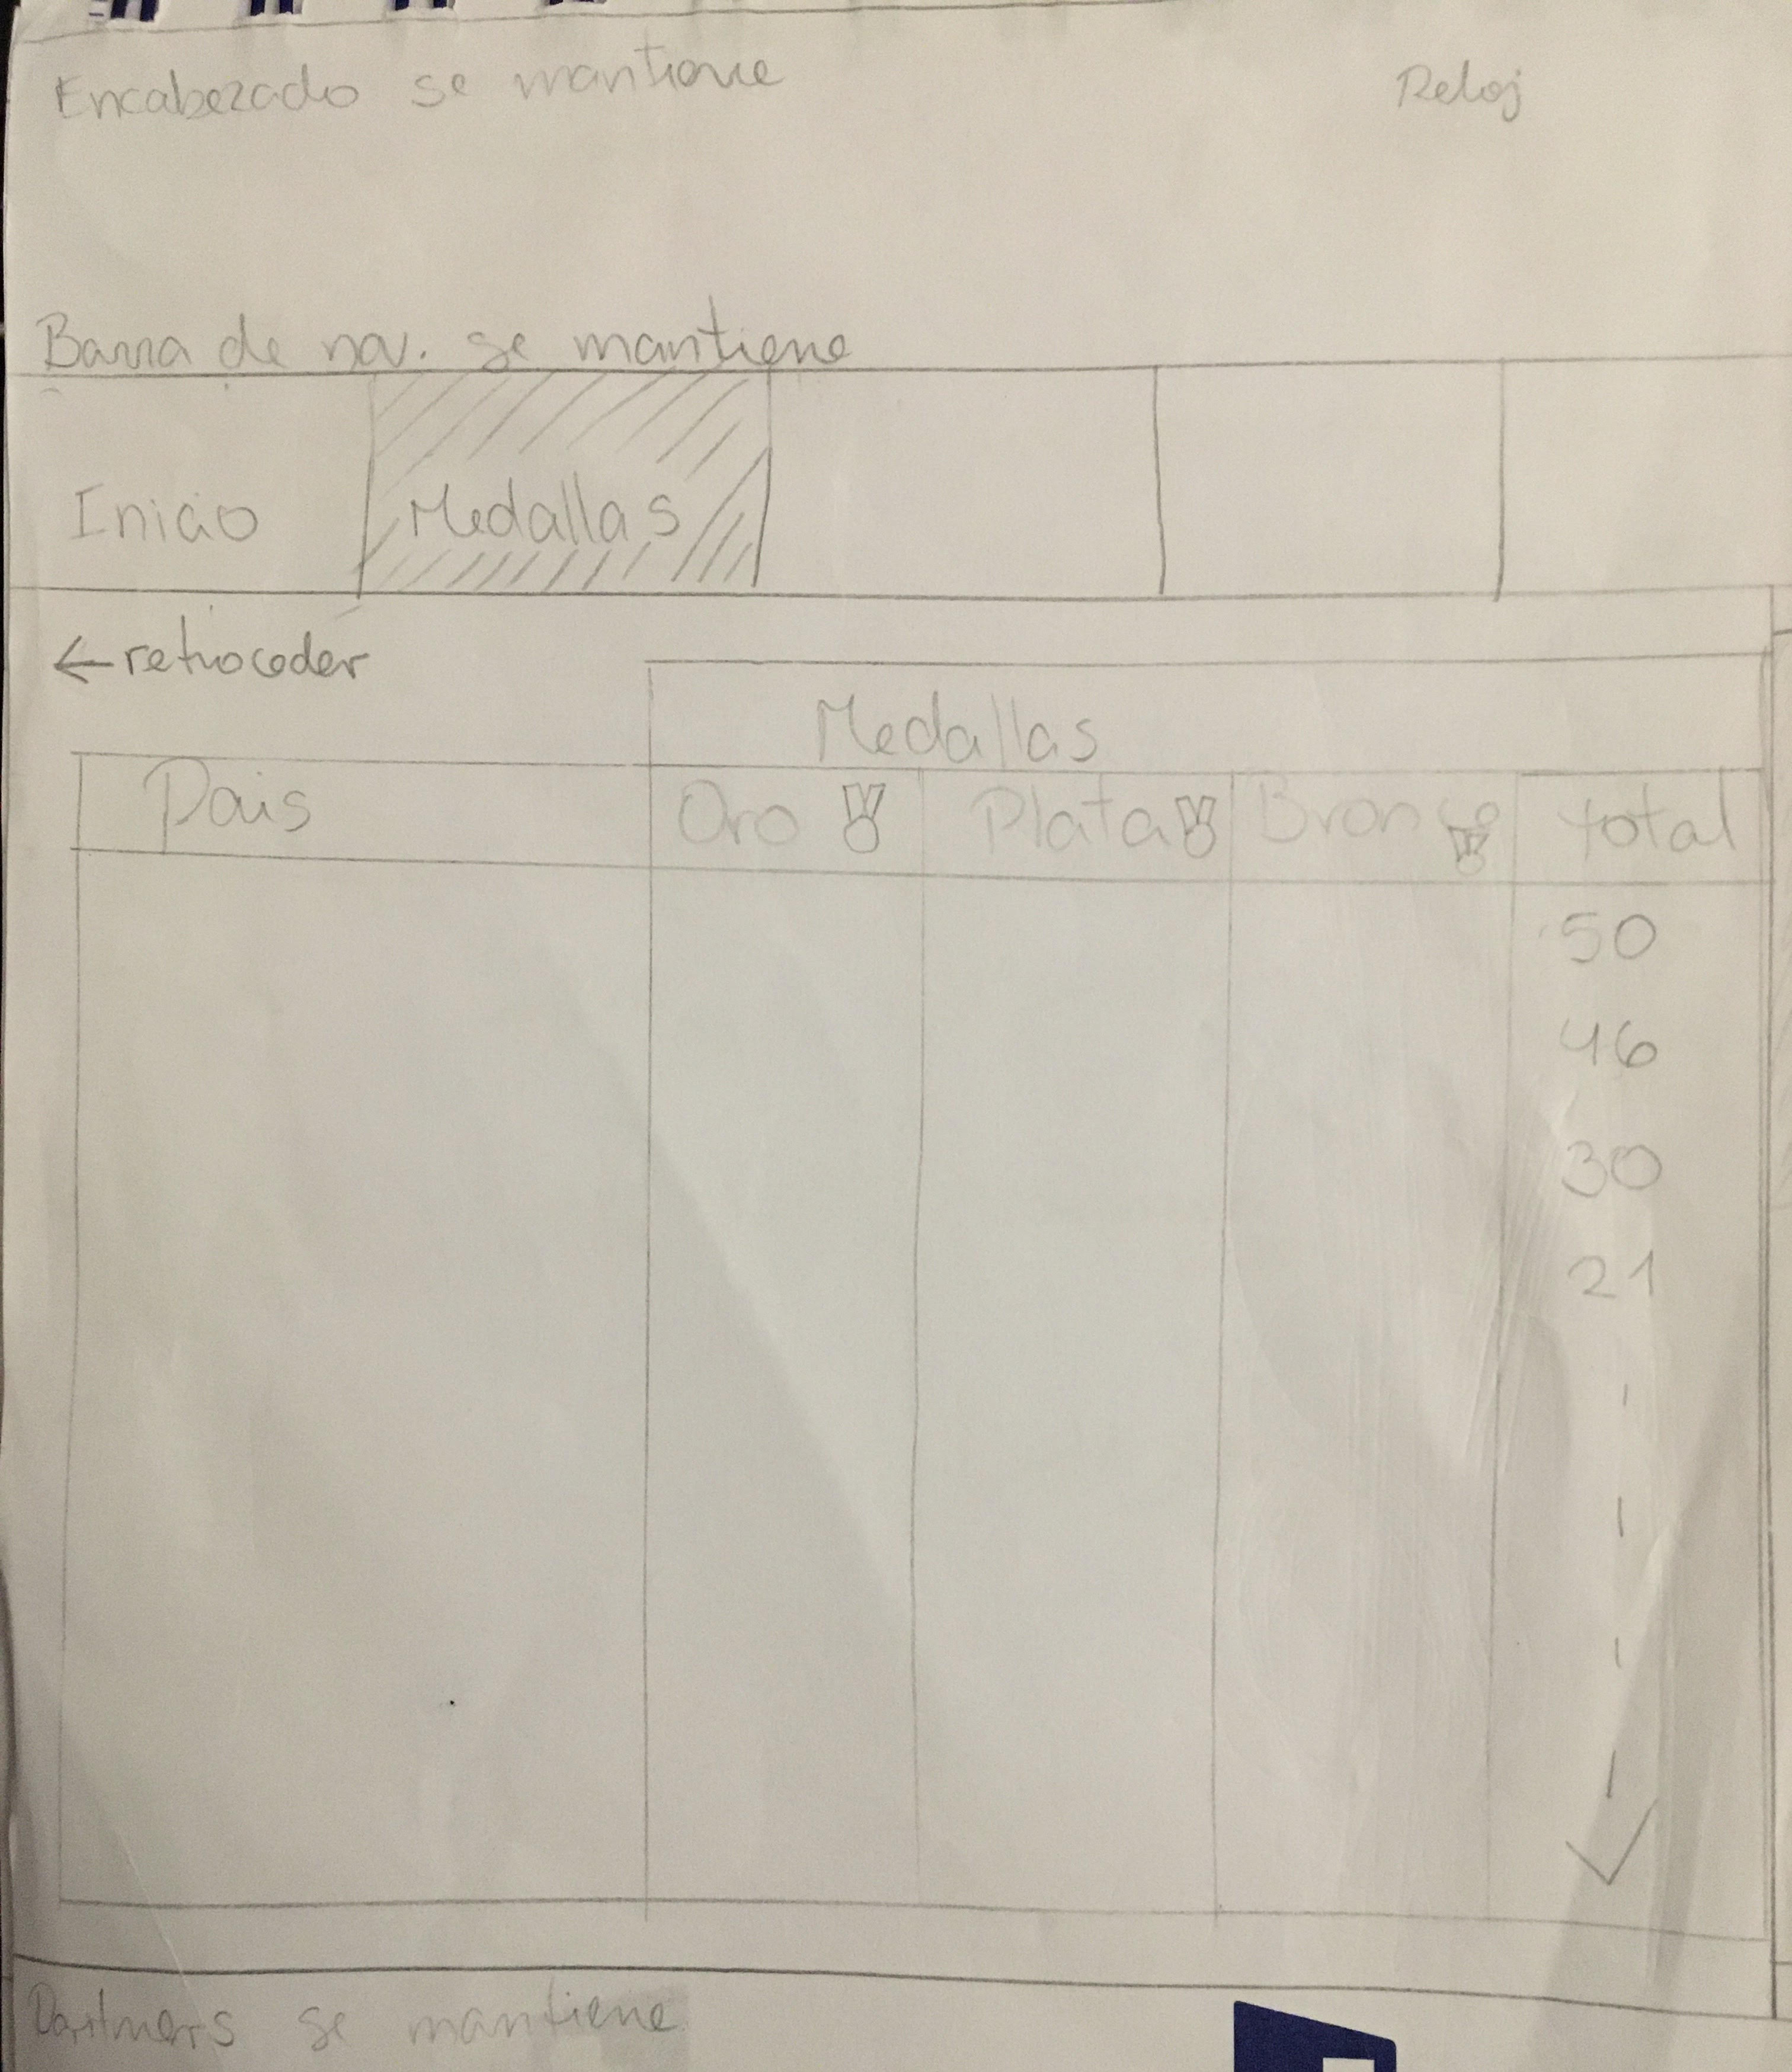 Encabezado se mantiene Reloj
Barra de nav. se mantiene
Inicio Medallas
← retroceder
Medallas
Pais Oro Plata Bronce total
50
46
30
21
Partners se mantiene